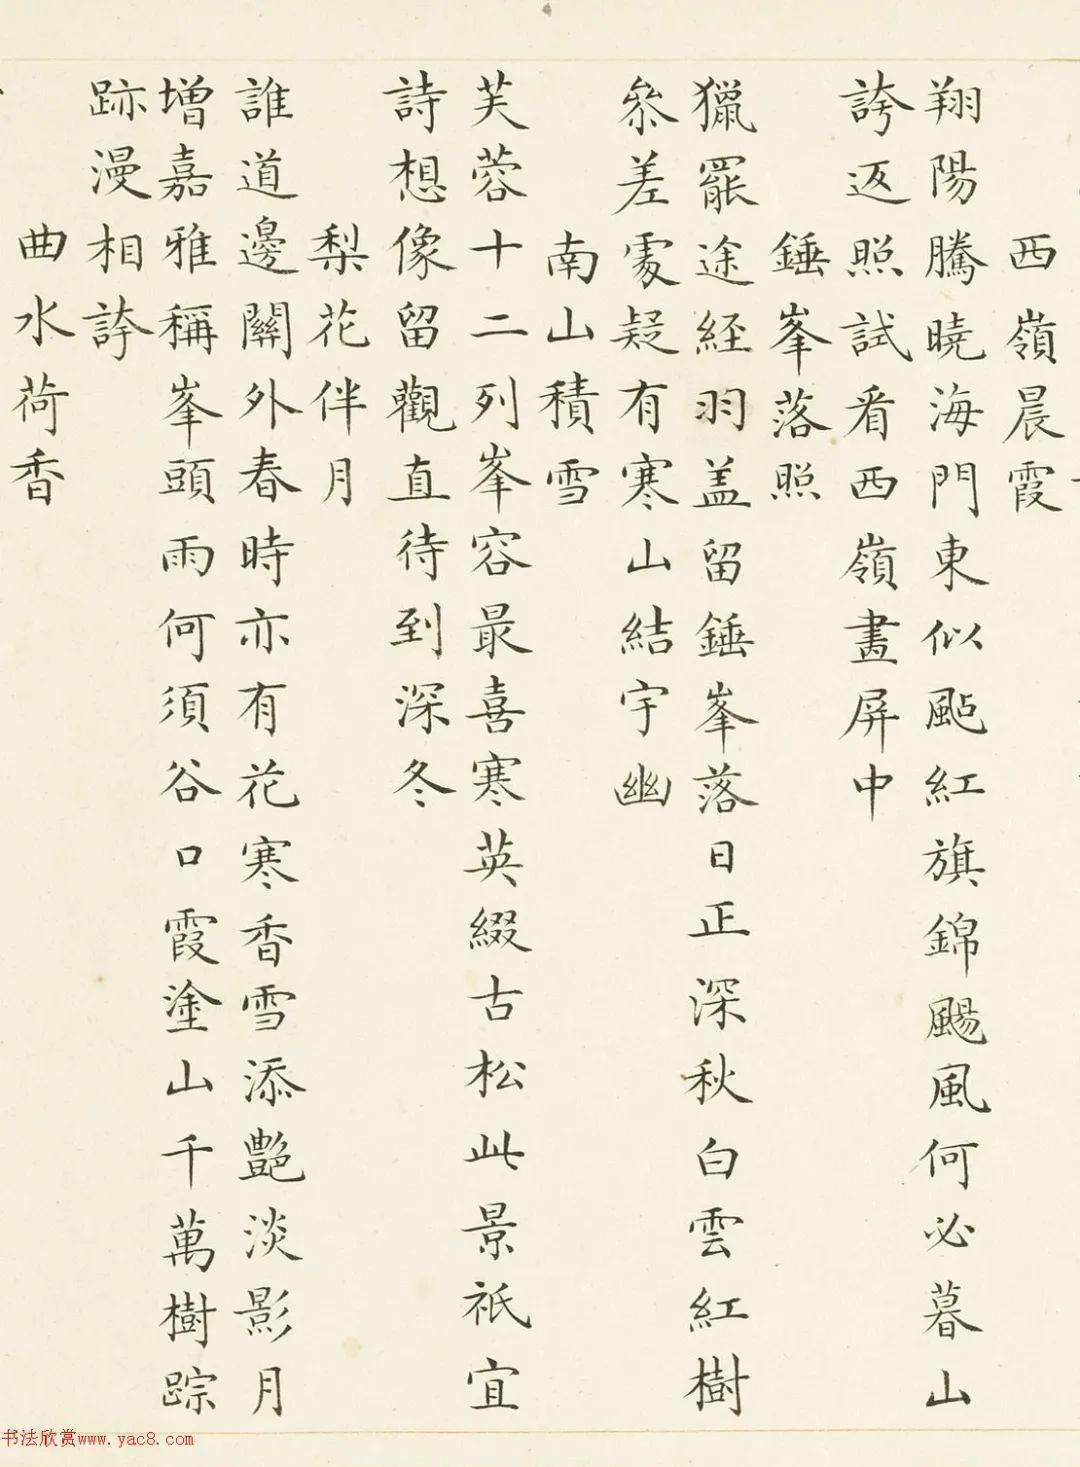 西嶺晨霞
翔陽騰曉海門東似颭紅旗錦颺風何必暮山
誇返照試看西嶺畫屏中
錘峯落照
獵罷途経羽盖留錘峯落日正深秋白雲紅樹
叅差處疑有寒山結宇幽
南山積雪
芙蓉十二列峯容最喜寒英綴古松此景祇宜
詩想像留觀直待到深冬
梨花伴月
誰道邊關外春時亦有花寒香雪添艷淡影月
增嘉雅稱峯頭雨何須谷口霞塗山千萬樹踪
跡漫相誇
曲水荷香
书法欣赏www.yac8.com